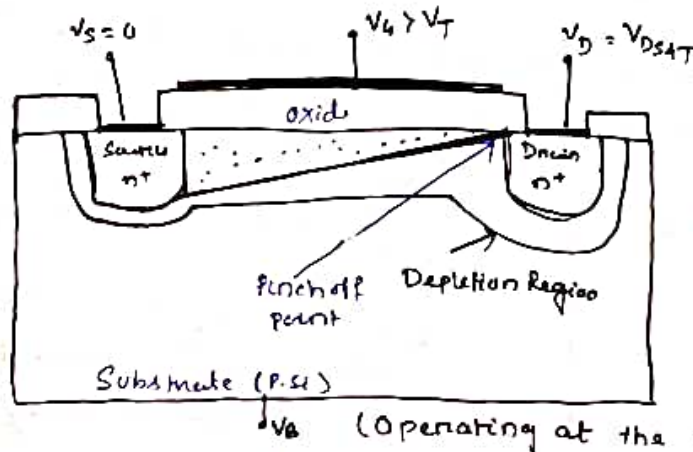 V_S = 0
V_G > V_T
V_D = V_DSAT
oxide
Source
n+
Drain
n+
Pinch off
point
Depletion Region
Substrate (P.Si)
V_B
(Operating at the